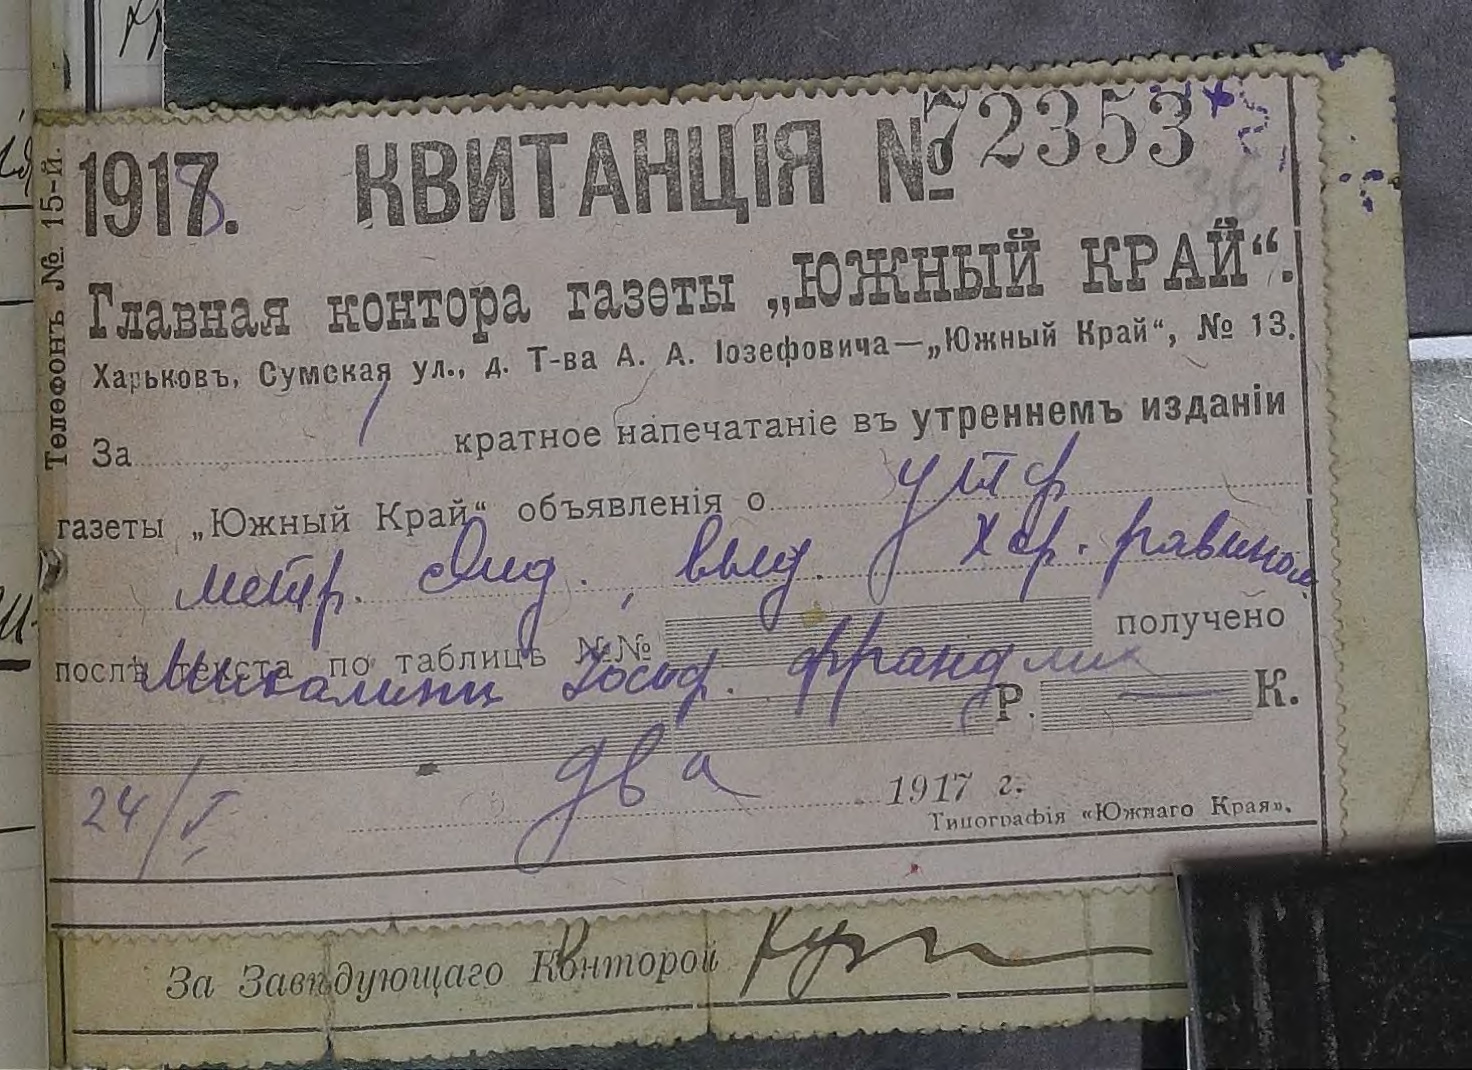 1918.
КВИТАНЦІЯ № 72353
36
Телефонъ № 15-й.
Главная контора газеты „ЮЖНЫЙ КРАЙ“.
Харьковъ, Сумская ул., д. Т-ва А. А. Іозефовича—„Южный Край“, № 13.
За 1 кратное напечатаніе въ утреннемъ изданіи
газеты „Южный Край“ объявленія о утр
метр. свид., выд. Хар. равином
послѣ текста по таблицѣ №№ получено
Іосиф.
Р. — К.
два
24/I 1917 г.
Типографія «Южнаго Края».
За Завѣдующаго Конторой